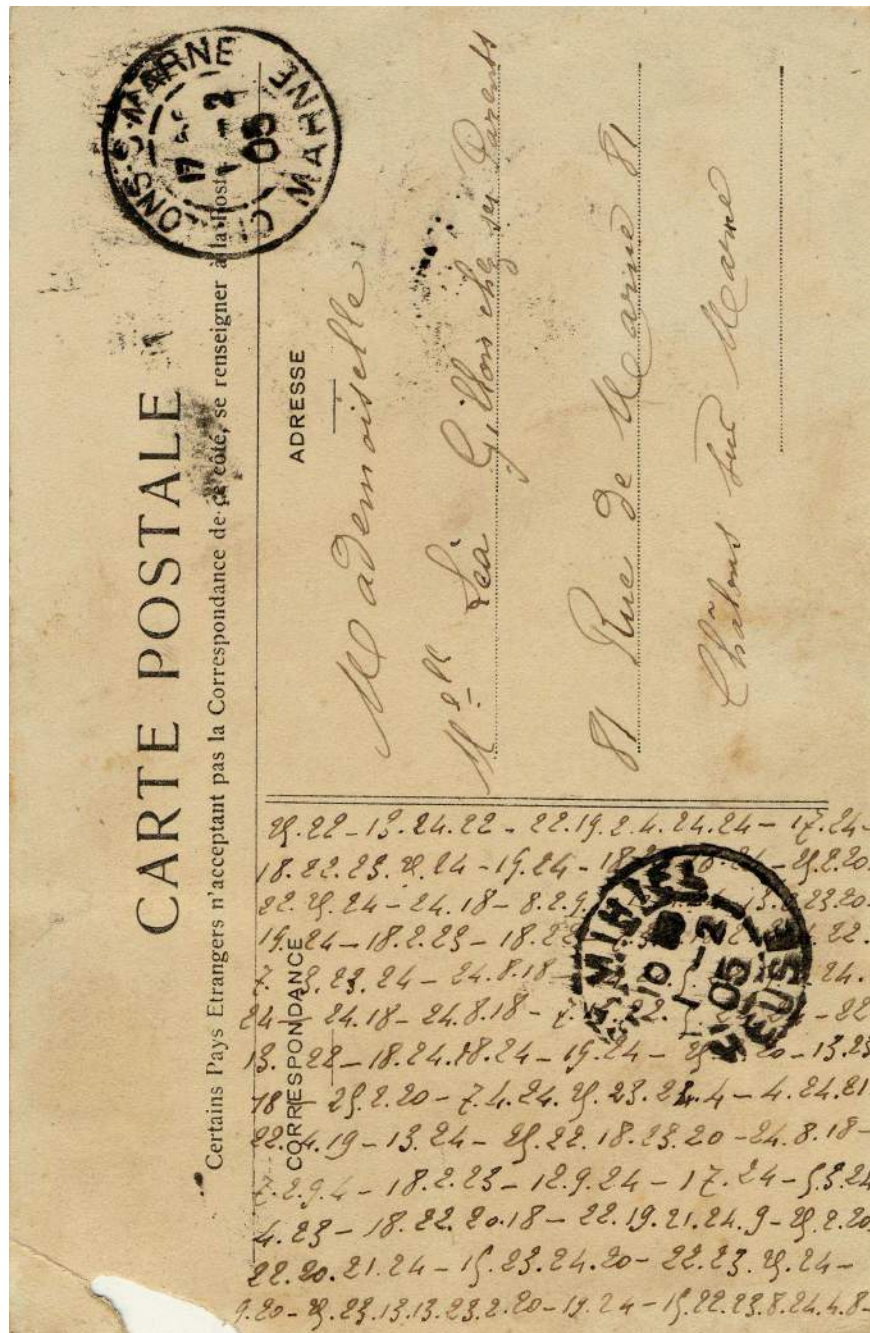 CARTE POSTALE
Certains Pays Etrangers n'acceptant pas la Correspondance de ce côté, se renseigner à la Poste
ADRESSE
Mademoiselle
Melle Léa Gillois chez ses Parents
81 Rue de Marne 81
Châlons sur Marne
CHALONS-S-MARNE
17
1-2
05
MARNE
CORRESPONDANCE
25.22 - 13.24.22 - 22.19.2.4.24.24 - 17.24 -
18.22.23.25.24 - 19.24 - 18.2 24 - 25.2.20.
22.25.24 - 24.18 - 8.2.9. 13.2.23.20 -
19.24 - 18.2.23 - 18.22 22.
7. 3.23.24 - 24.8.18 - 24.
24 - 24.18 - 24.8.18 - 7. 22. - 22
13.22 - 18.24.18.24 - 19.24 - 25. 20 - 13.23
18 - 25.2.20 - 7.4.24.25.23.24.4 - 4.24.21
22.4.19 - 13.24 - 25.22.18.23.20 - 24.8.18 -
7.2.9.4 - 18.2.23 - 12.9.24 - 17.24 - 5.3.24
4.23 - 18.22.20.18 - 22.19.21.24.9 - 25.2.20
22.20.21.24 - 15.23.24.20 - 22.23.25.24 -
9.20 - 25.23.13.13.23.2.20 - 19.24 - 15.22.23.8.24.4.8 -
MIHIEL
10
1-21
05
MEUSE